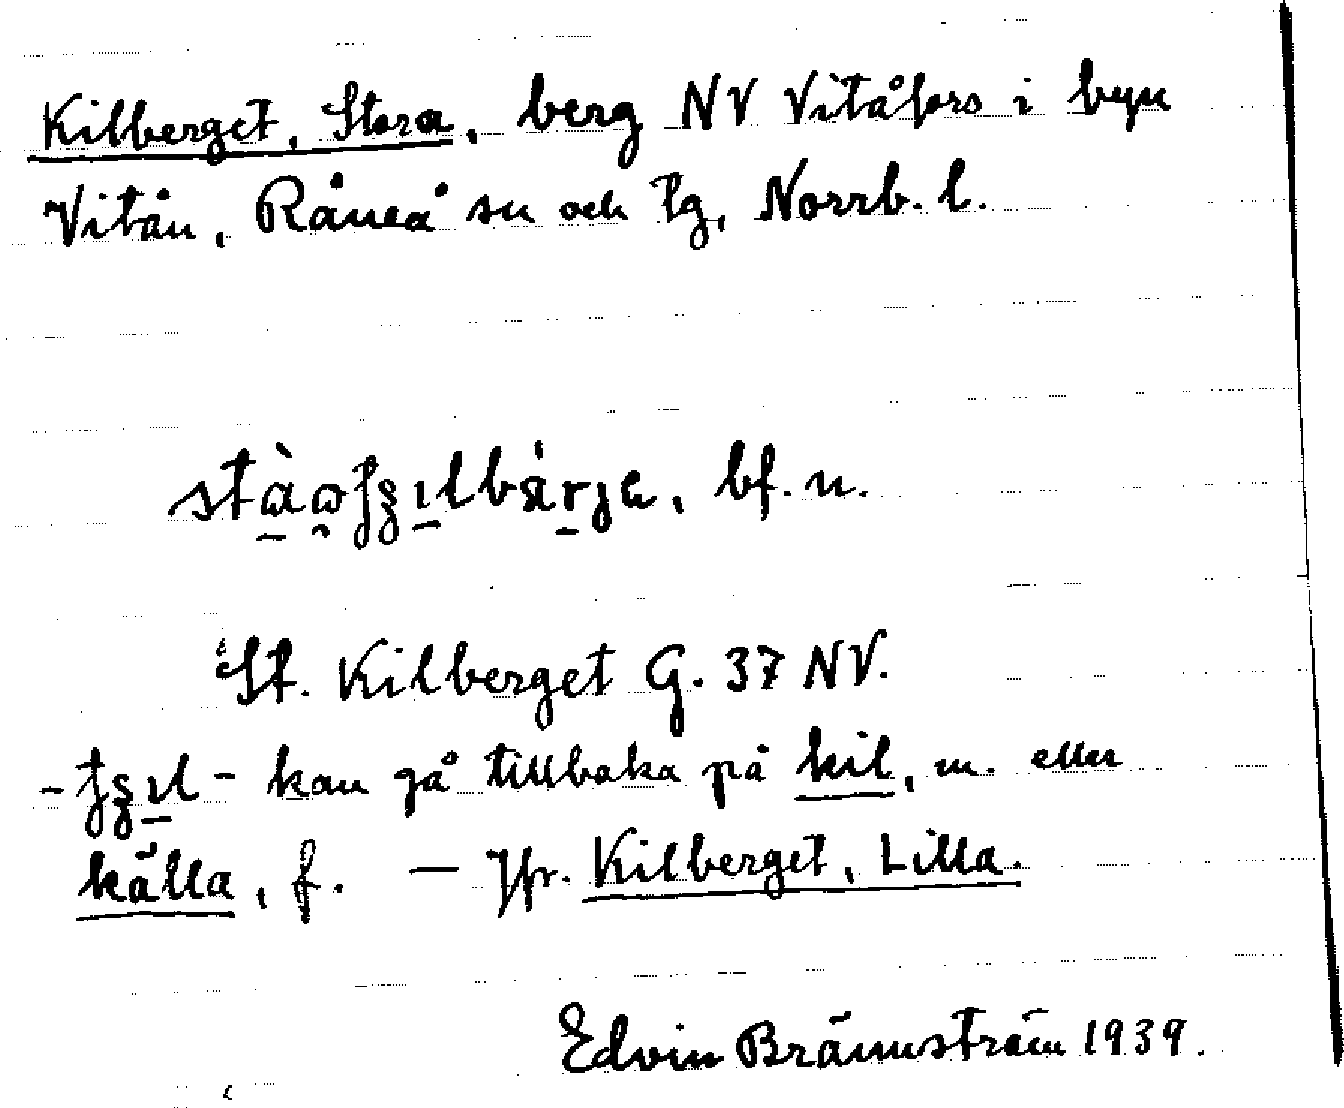 Kilberget, Stora, berg NV Vitåfors i byn
Vitån, Råneå sn och tg, Norrb. l.
bf. n.
St. Kilberget G. 37 NV.
kan gå tillbaka på kil, m. eller
källa, f. — Jfr. Kilberget, Lilla.
Edvin Brännström 1939.